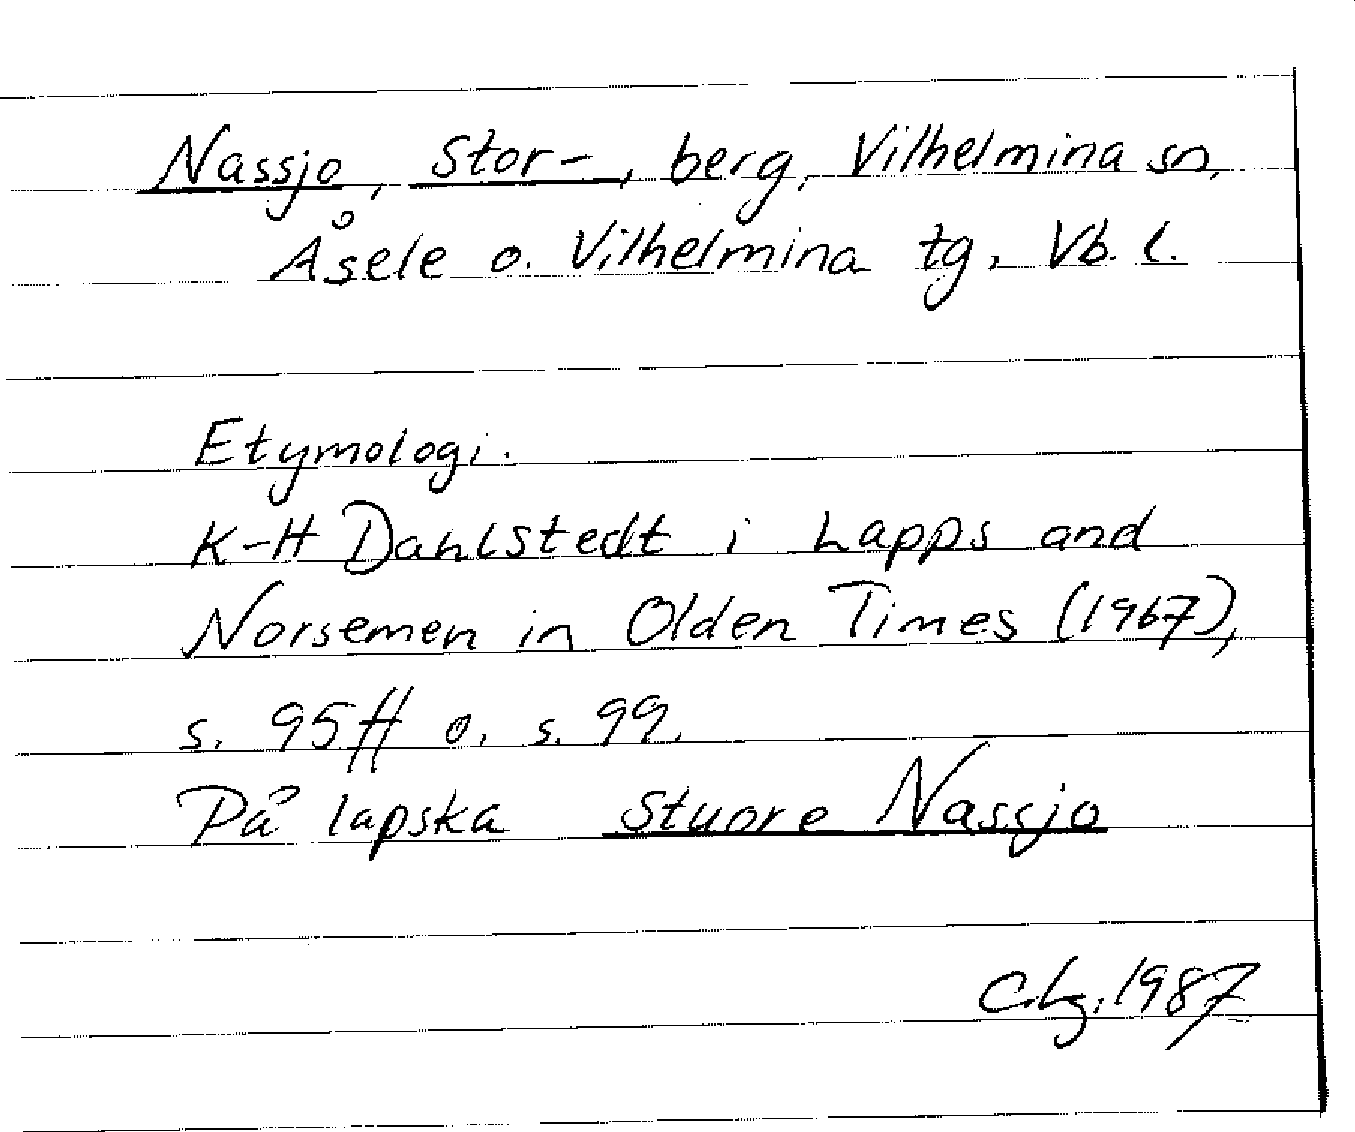 Nassjo, Stor-, berg, Vilhelmina sn,
Åsele o. Vilhelmina tg, Vb. l.
Etymologi.
K-H Dahlstedt i Lapps and
Norsemen in Olden Times (1967),
s. 95ff o. s. 99.
På lapska Stuore Nassjo
C.Lg. 1987